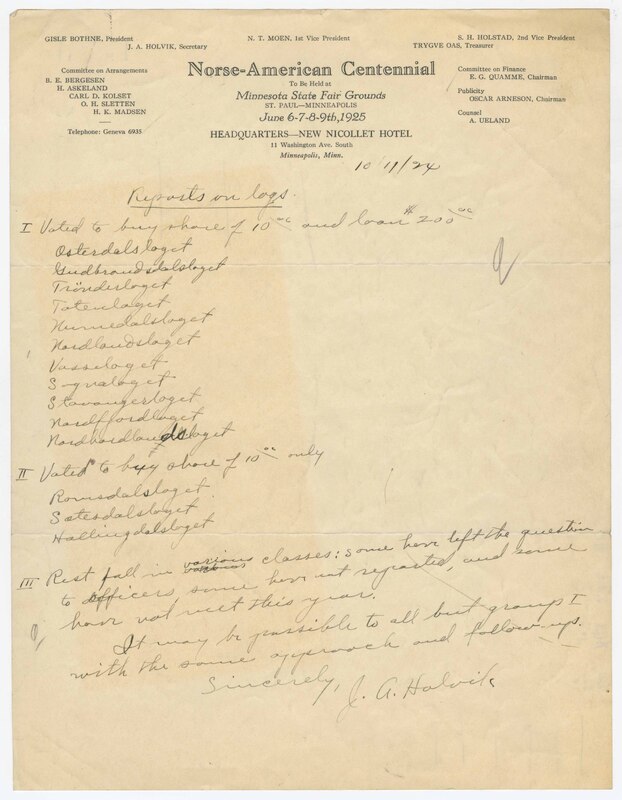 GISLE BOTHNE, President
J. A. HOLVIK, Secretary
N. T. MOEN, 1st Vice President
S. H. HOLSTAD, 2nd Vice President
TRYGVE OAS, Treasurer
Committee on Arrangements
B. E. BERGESEN
H. ASKELAND
CARL D. KOLSET
O. H. SLETTEN
H. K. MADSEN
Telephone: Geneva 6935
Norse-American Centennial
To Be Held at
Minnesota State Fair Grounds
ST. PAUL—MINNEAPOLIS
June 6-7-8-9th, 1925
HEADQUARTERS—NEW NICOLLET HOTEL
11 Washington Ave. South
Minneapolis, Minn.
Committee on Finance
E. G. QUAMME, Chairman
Publicity
OSCAR ARNESON, Chairman
Counsel
A. UELAND
10/19/24
Reports on logs.
I Voted to buy share of 10 00 and loan $200 00
Osterdalslaget
Gudbrandsdalslaget
Trönderlaget
Totenlaget
Numedalslaget
Nordlandslaget
Vosselaget
Sognalaget
Stavangerlaget
Nordfjordlaget
Nordhordlandslaget
II Voted to buy share of 10 00 only
Romsdalslaget
Setesdalslaget
Hallingdalslaget
III Rest fall in various classes: some have left the question
to officers, some have not reported, and some
have not met this year.
It may be possible to all but group I
with the same approach and follow-up.
Sincerely,
J. A. Holvik